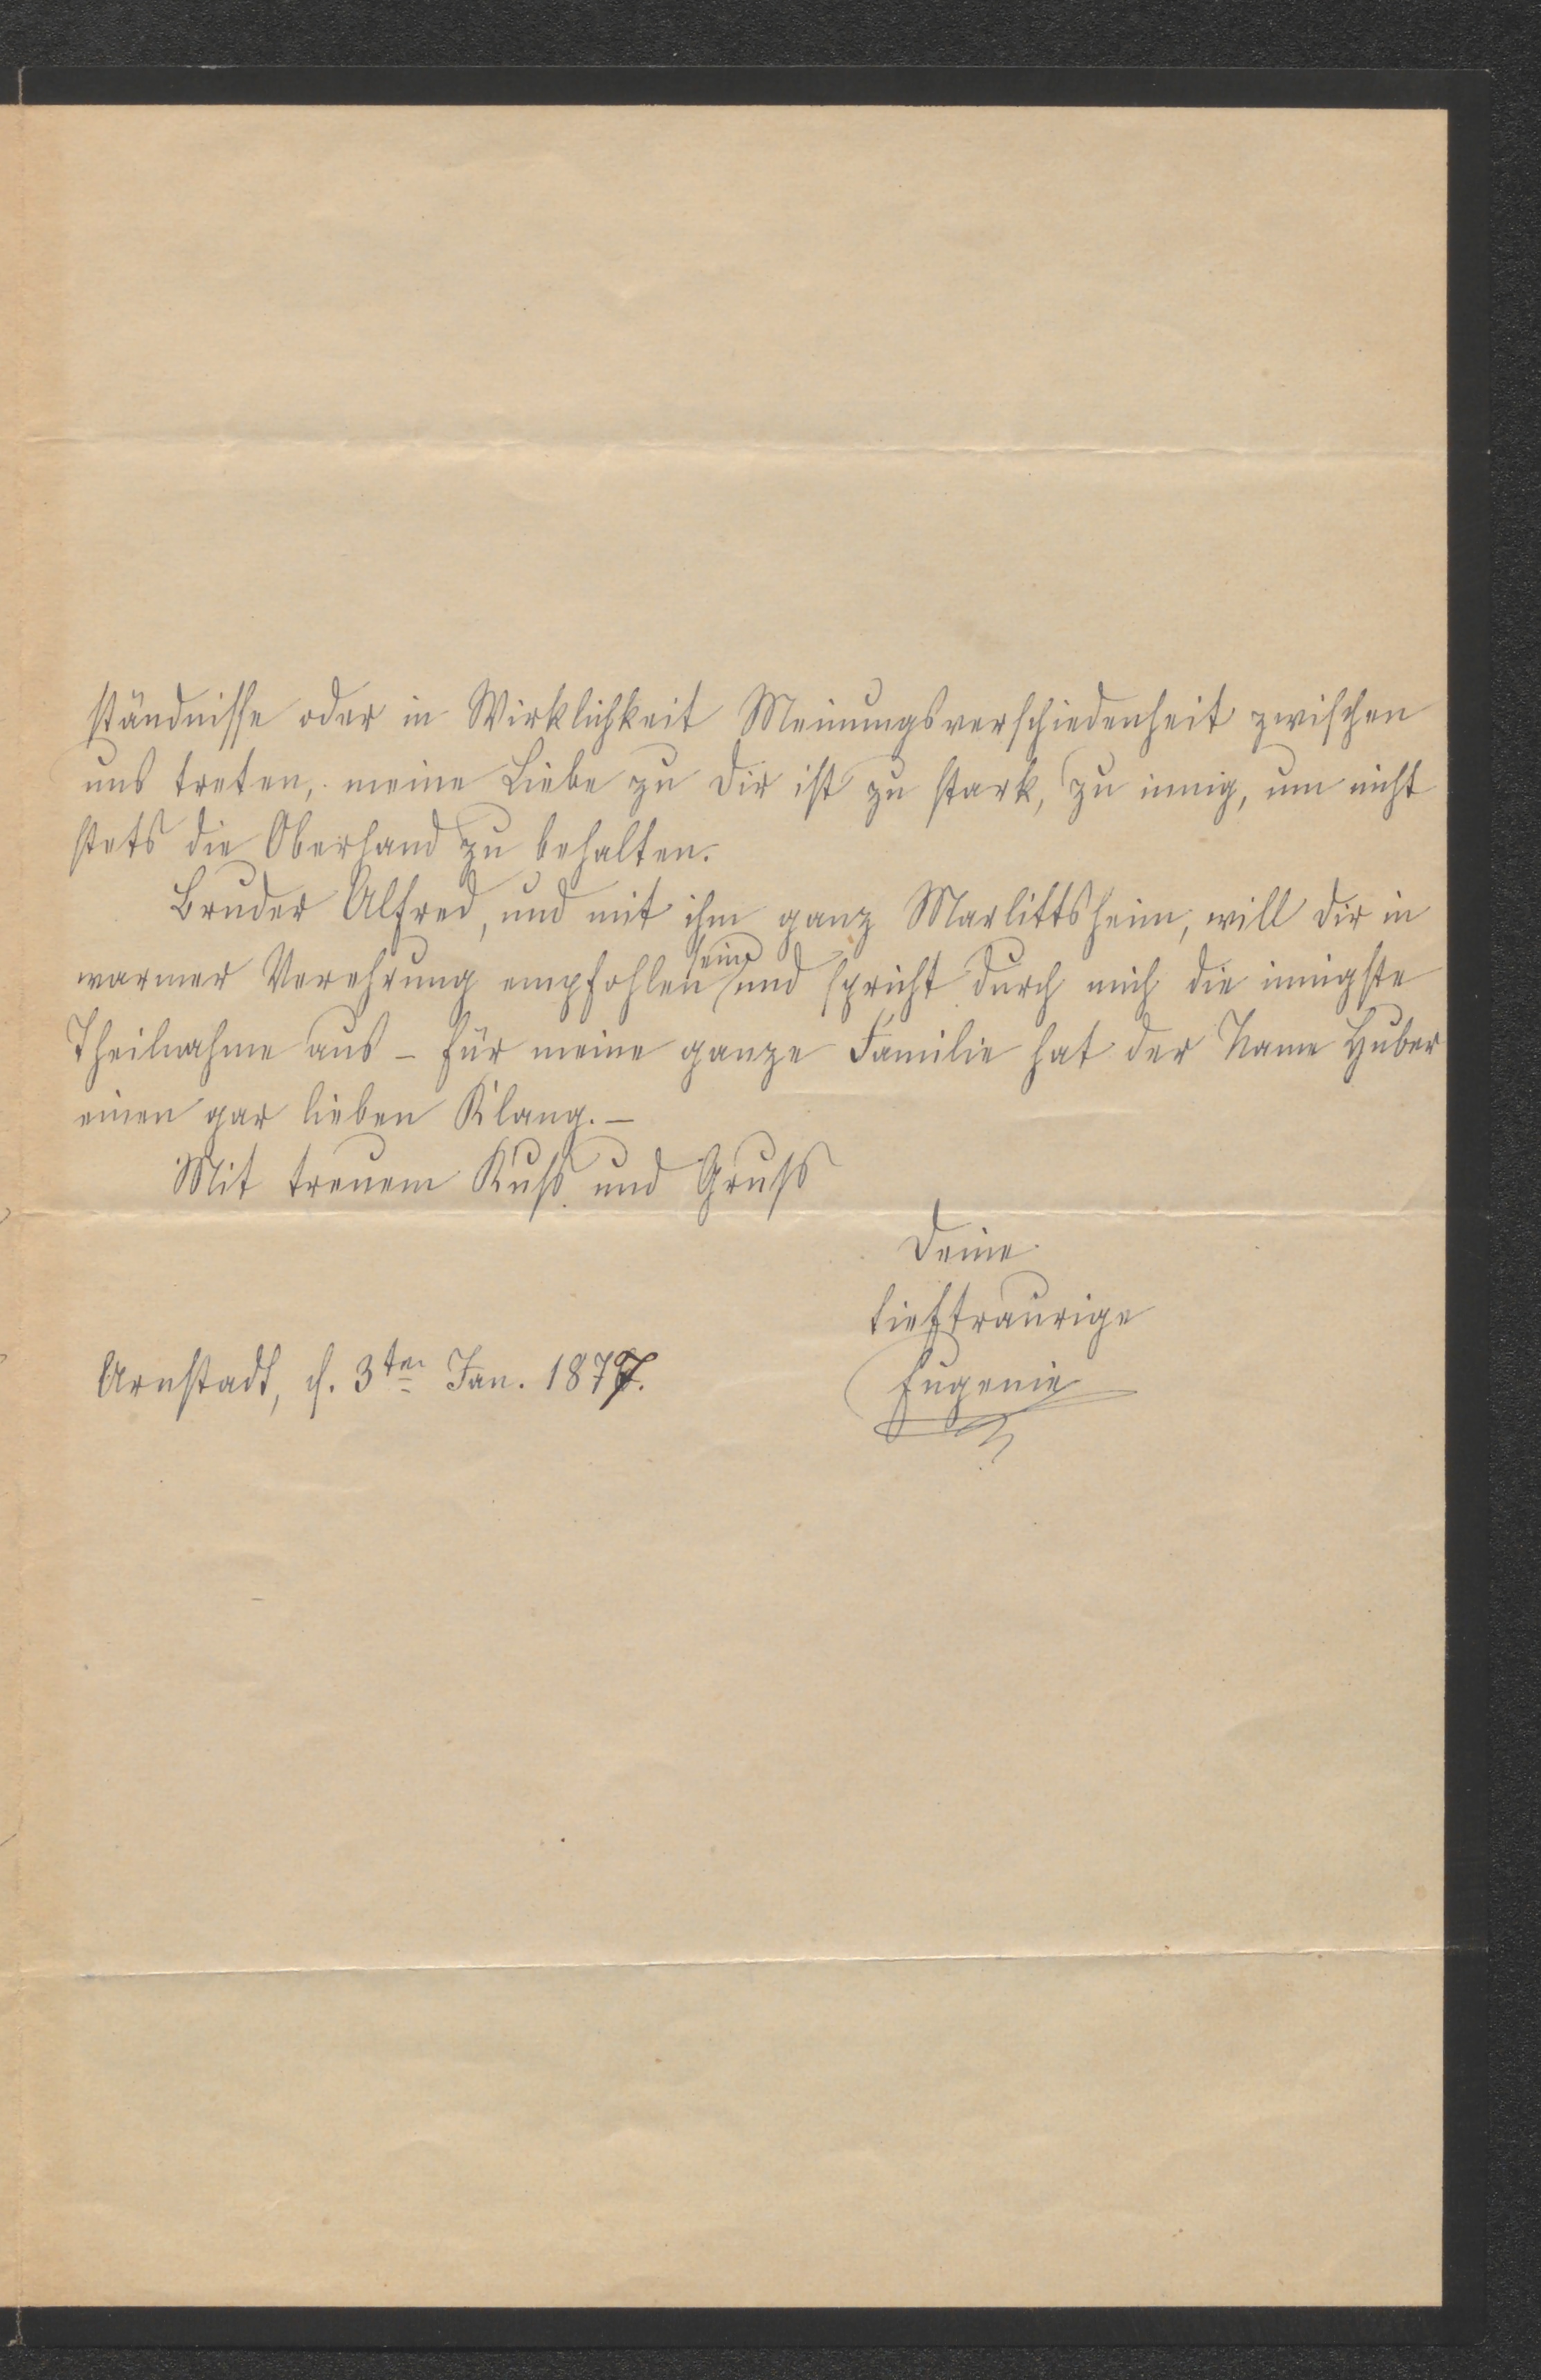 ständnisse oder in Wirklichkeit Meinungsverschiedenheit zwischen
uns treten, meine Liebe zu Dir ist zu stark, zu innig, um nicht
stets die Oberhand zu behalten.
Bruder Alfred, und mit ihm ganz Marlittsheim, will Dir in
warmer Verehrung empfohlen sein und spricht durch mich die innigste
Theilnahme aus – für meine ganze Familie hat der Name Huber
einen gar lieben Klang. –
Mit treuem Kuß und Gruß
Deine
tieftraurige
Arnstadt, d. 3ten Jan. 1877.
Eugenie